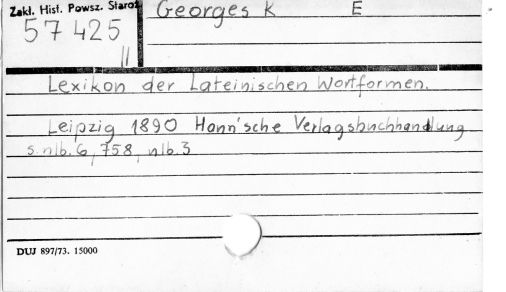 Zakł. Hist. Powsz. Staroż
Georges K E
57 425
II
Lexikon der Lateinischen Wortformen.
Leipzig 1890 Hann'sche Verlagsbuchhandlung
s. nlb. 6, 758, nlb. 3
DUJ 897/73. 15000